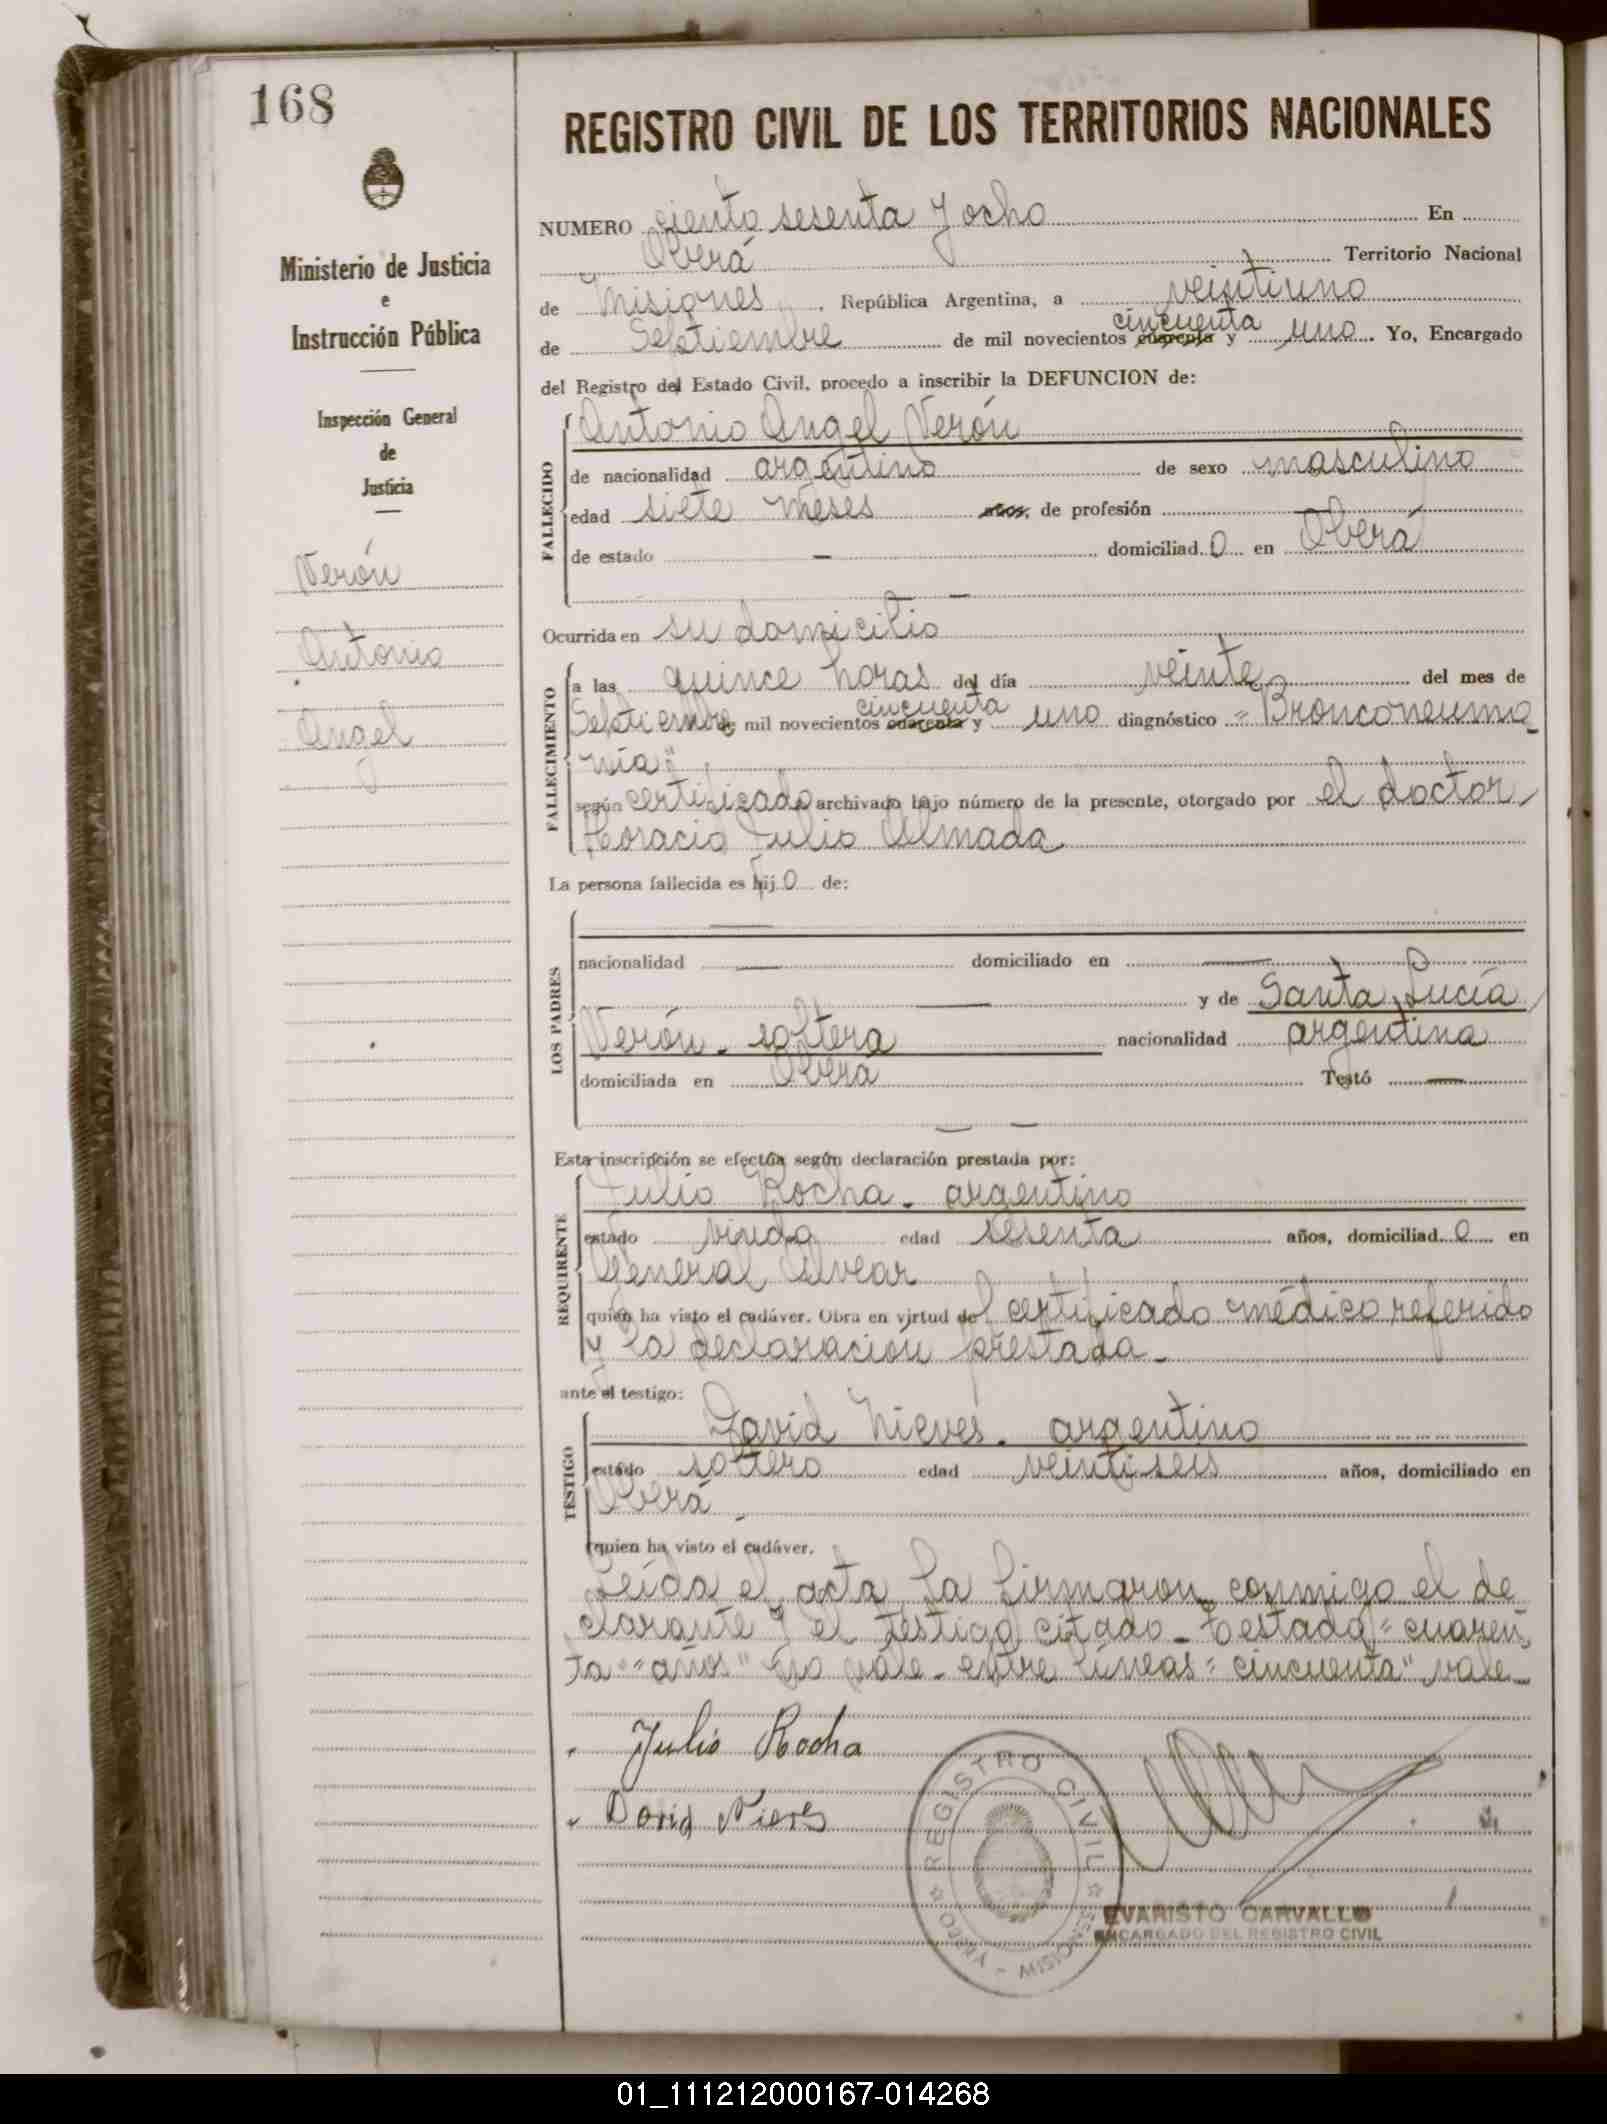 168
Ministerio de Justicia
e
Instrucción Pública
Inspección General
de
Justicia
Verón
Antonio
Angel
REGISTRO CIVIL DE LOS TERRITORIOS NACIONALES
NUMERO ciento sesenta y ocho En
Oberá Territorio Nacional
de Misiones, República Argentina, a veintiuno
de Septiembre de mil novecientos cuarenta cincuenta y uno. Yo, Encargado
del Registro del Estado Civil, procedo a inscribir la DEFUNCION de:
FALLECIDO
Antonio Angel Verón
de nacionalidad argentino de sexo masculino
edad siete meses años, de profesión
de estado — domiciliado en Oberá
—
Ocurrida en su domicilio
FALLECIMIENTO
a las quince horas del día veinte del mes de
Septiembre de mil novecientos cuarenta cincuenta y uno diagnóstico "Bronconeumo-
nía"
según certificado archivado bajo número de la presente, otorgado por el doctor
Horacio Julio Almada
La persona fallecida es hijo de:
LOS PADRES
—
nacionalidad — domiciliado en —
— y de Santa Lucía
Verón - soltera nacionalidad argentina
domiciliada en Oberá Testó —
— —
Esta inscripción se efectúa según declaración prestada por:
REQUIRENTE
Julio Rocha - argentino
estado viudo edad sesenta años, domiciliado en
General Alvear
quien ha visto el cadáver. Obra en virtud del certificado médico referido
y la declaración prestada -
ante el testigo:
TESTIGO
David Nieves - argentino
estado soltero edad veintiseis años, domiciliado en
Oberá -
quien ha visto el cadáver.
Leída el acta, la firmaron conmigo el de
clarante y el testigo citado - Testado "cuaren
ta" "años" no vale - entre líneas "cincuenta" vale -
Julio Rocha
David Nieves
REGISTRO CIVIL
OBERA - MISIONES
EVARISTO CARVALLO
ENCARGADO DEL REGISTRO CIVIL
01_111212000167-014268